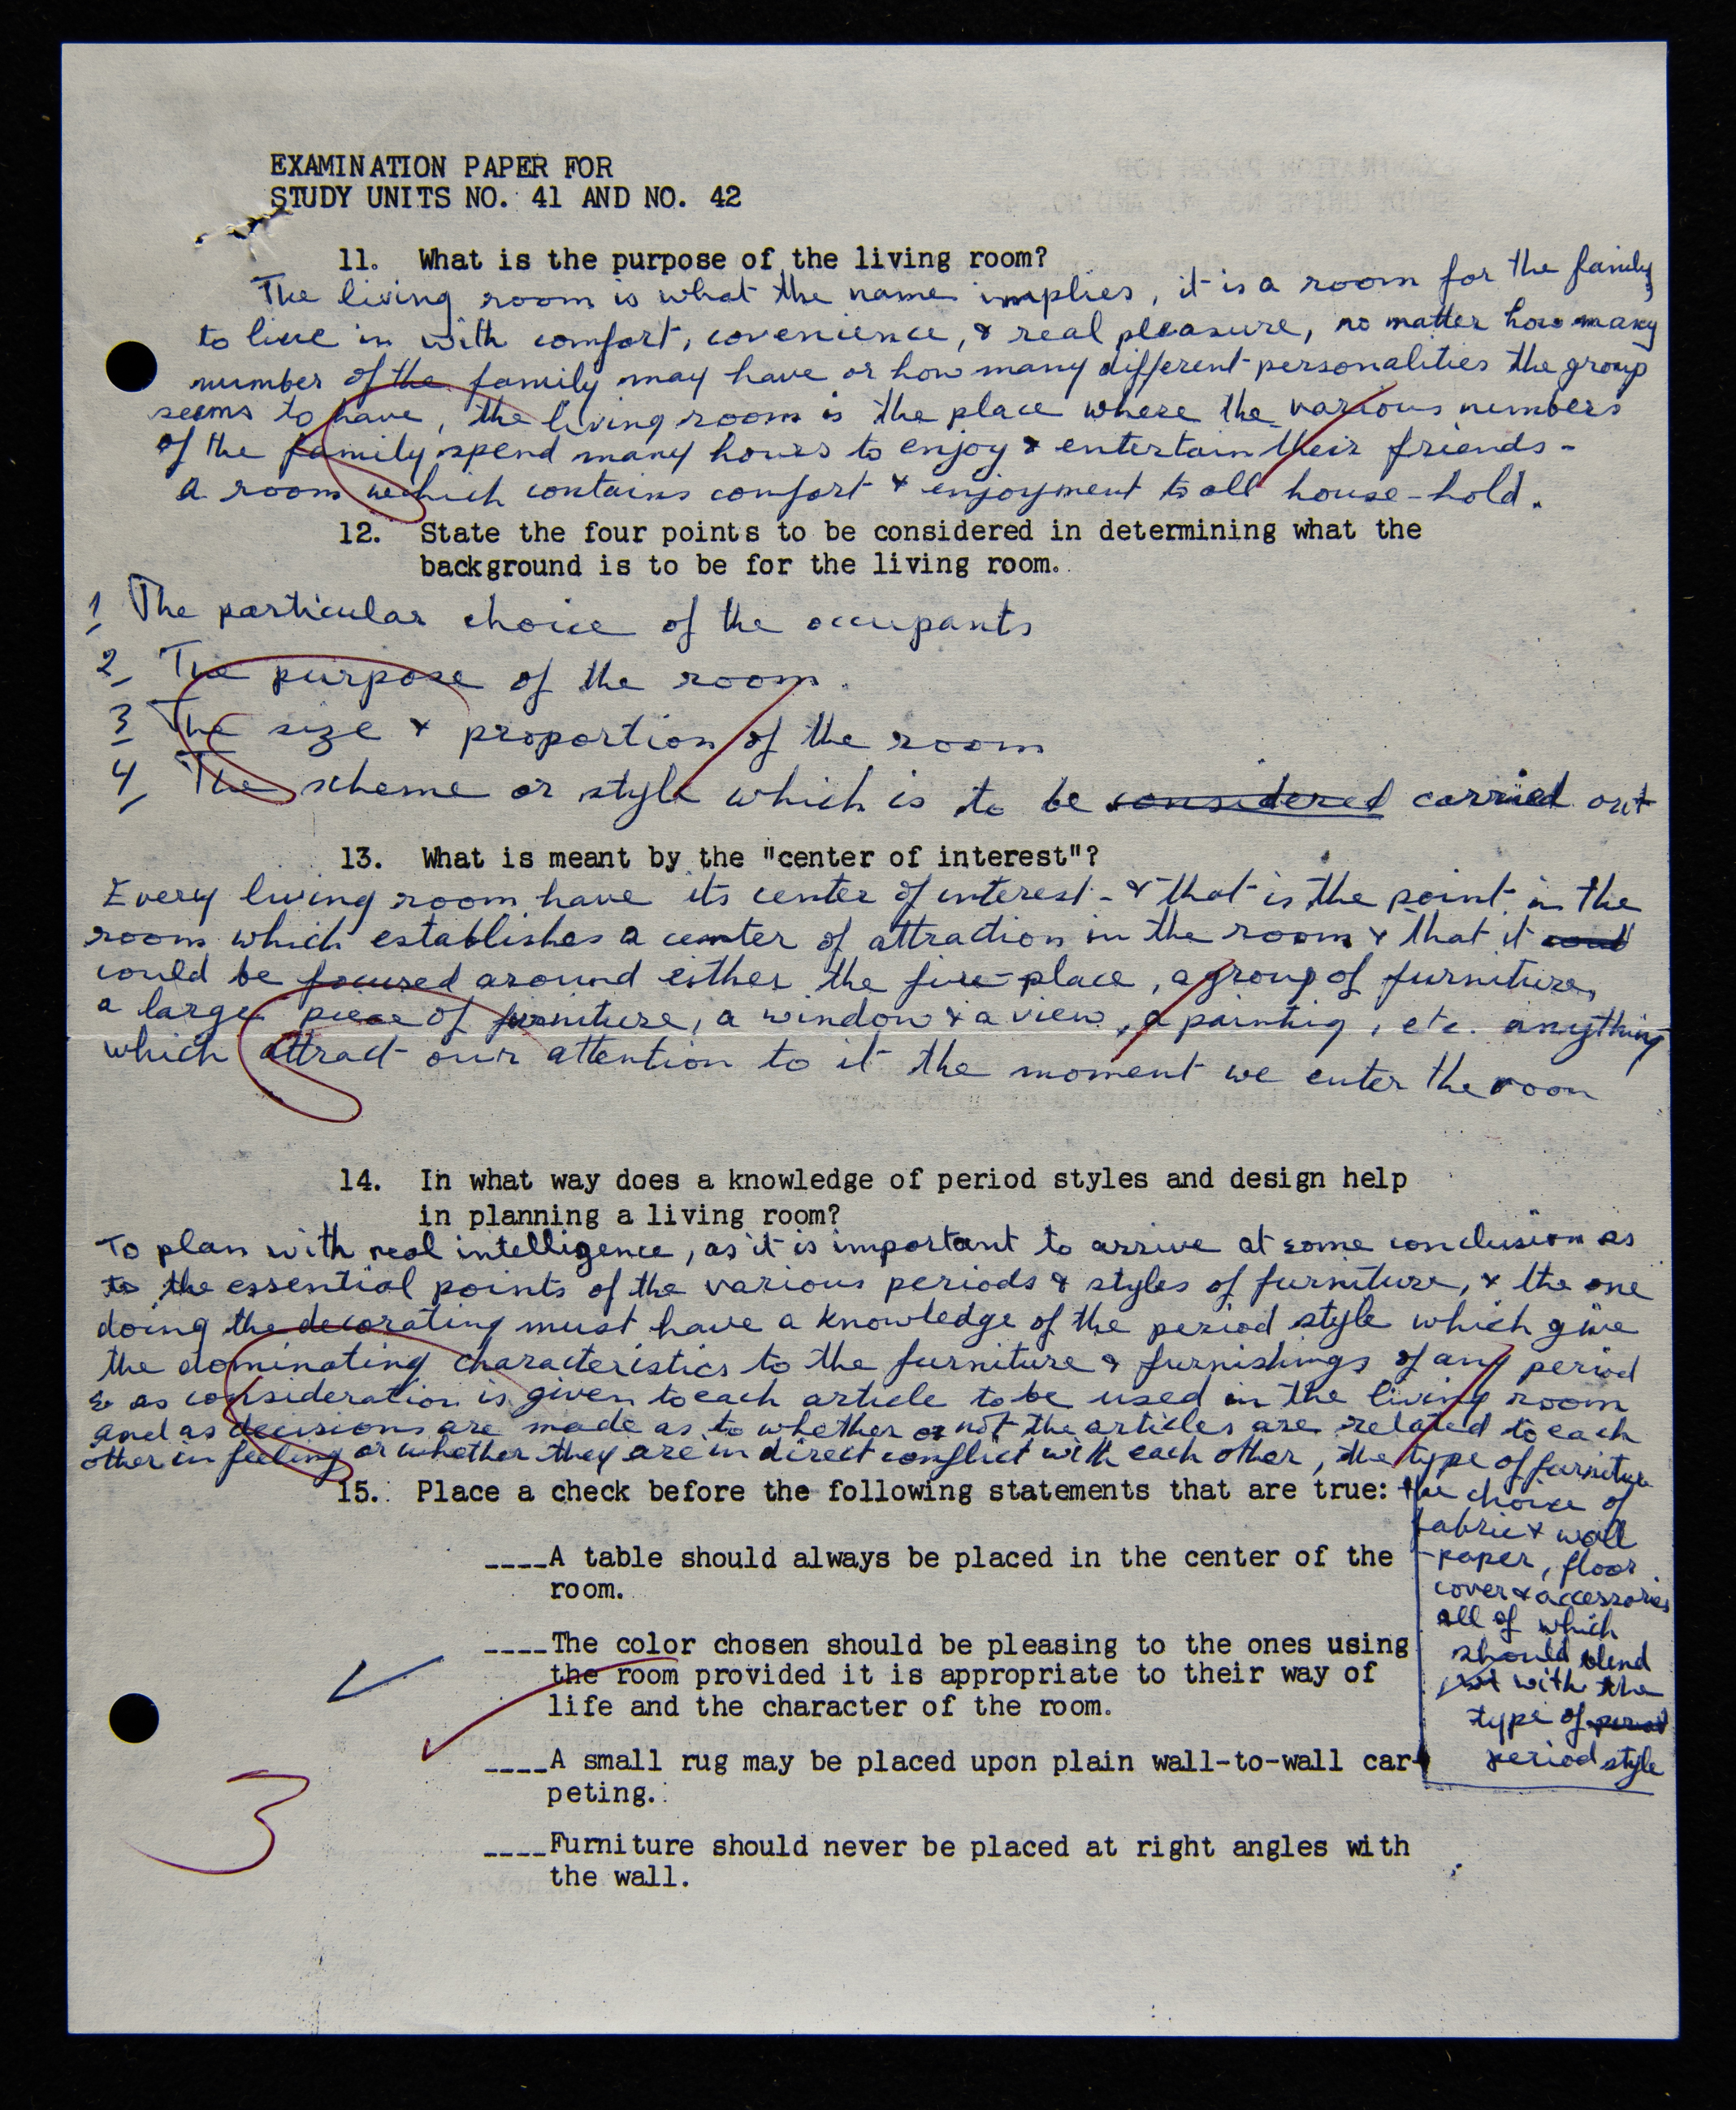 EXAMINATION PAPER FOR
STUDY UNITS NO. 41 AND NO. 42
11. What is the purpose of the living room?
The living room is what the name implies, it is a room for the family
to live in with comfort, covenience, & real pleasure, no matter how many
number of the family may have or how many different personalities the group
seems to have, the living room is the place where the various numbers
of the family spend many hours to enjoy & entertain their friends -
a room which contains comfort & enjoyment to all house-hold.
12. State the four points to be considered in determining what the
background is to be for the living room.
1 The particular choice of the occupants
2 The purpose of the room.
3 The size & proportion of the room
4 The scheme or style which is to be considered carried out
13. What is meant by the "center of interest"?
Every living room have its center of interest - & that is the point in the
room which establishes a center of attraction in the room & that it coud
could be focused around either the fire-place, a group of furniture,
a large piece of furniture, a window & a view, a painting, etc. anything
which attract our attention to it the moment we enter the room
14. In what way does a knowledge of period styles and design help
in planning a living room?
To plan with real intelligence, as it is important to arrive at some conclusion as
to the essential points of the various periods & styles of furniture, & the one
doing the decorating must have a knowledge of the period style which give
the dominating characteristics to the furniture & furnishings of any period
& as consideration is given to each article to be used in the living room
and as decisions are made as to whether or not the articles are related to each
other in feeling or whether they are in direct conflict with each other, the type of furniture
the choice of
fabric & wall
-paper, floor
cover & accessories
all of which
should blend
with the
type of period
period style
15. Place a check before the following statements that are true:
____A table should always be placed in the center of the
room.
____The color chosen should be pleasing to the ones using
the room provided it is appropriate to their way of
life and the character of the room.
____A small rug may be placed upon plain wall-to-wall car-
peting.
____Furniture should never be placed at right angles with
the wall.
3